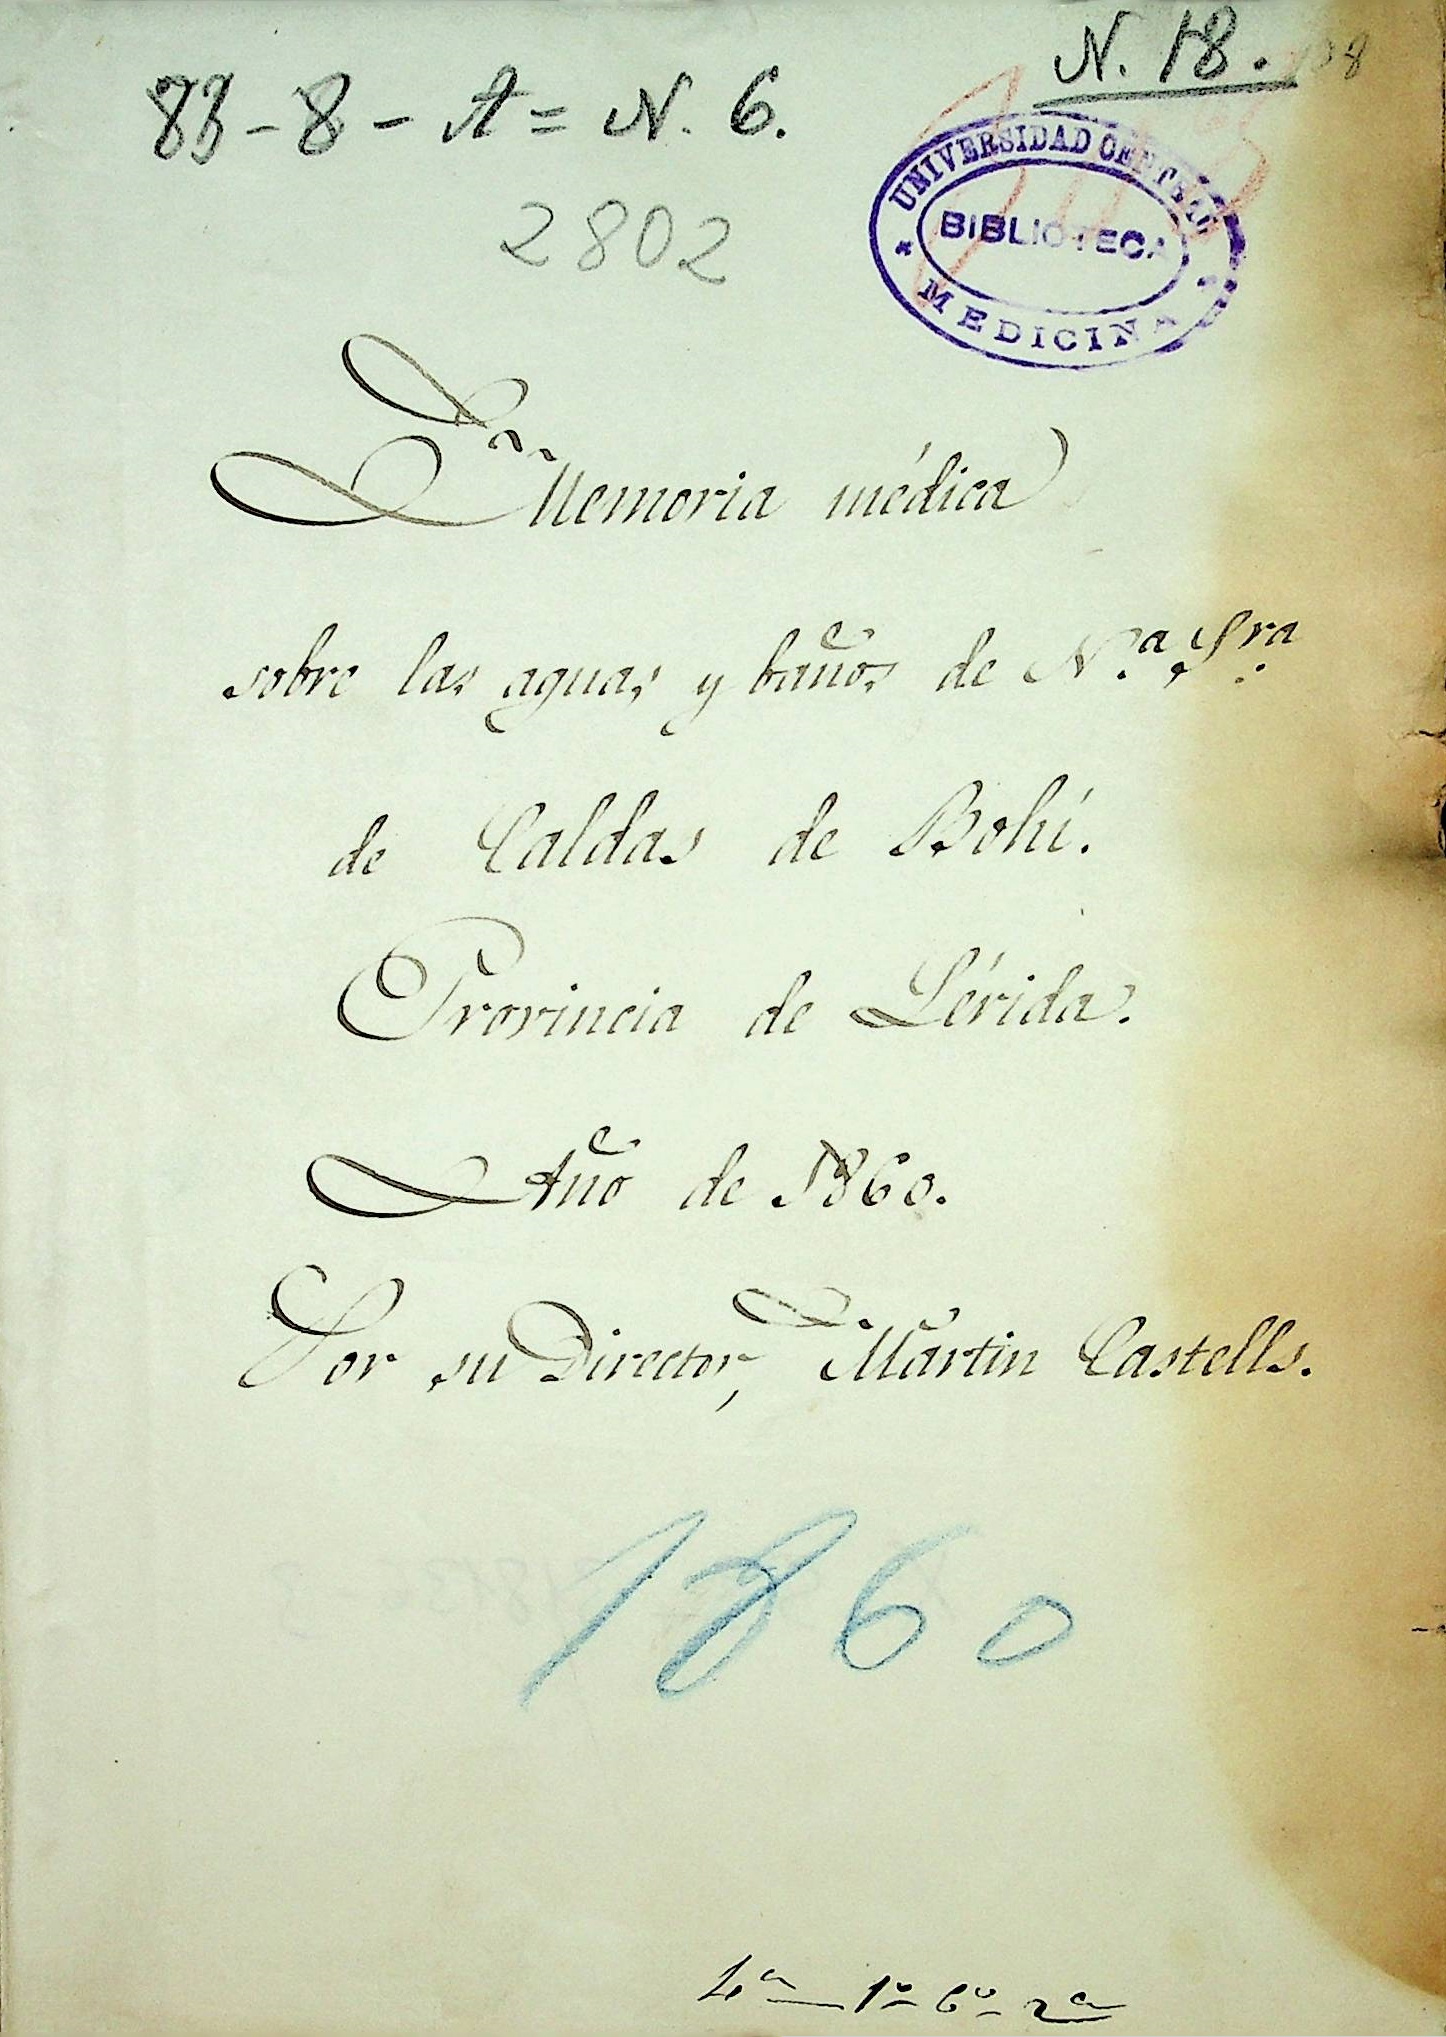 N. 18.
83 - 8 - A = N. 6.
2802
UNIVERSIDAD CENTRAL
BIBLIOTECA
MEDICINA
Memoria médica
sobre las aguas y baños de N.ª Sra.
de Caldas de Bohí.
Provincia de Lérida.
Año de 1860.
Por su Director, Martin Castells.
1860
4ª 1º 6º 2ª